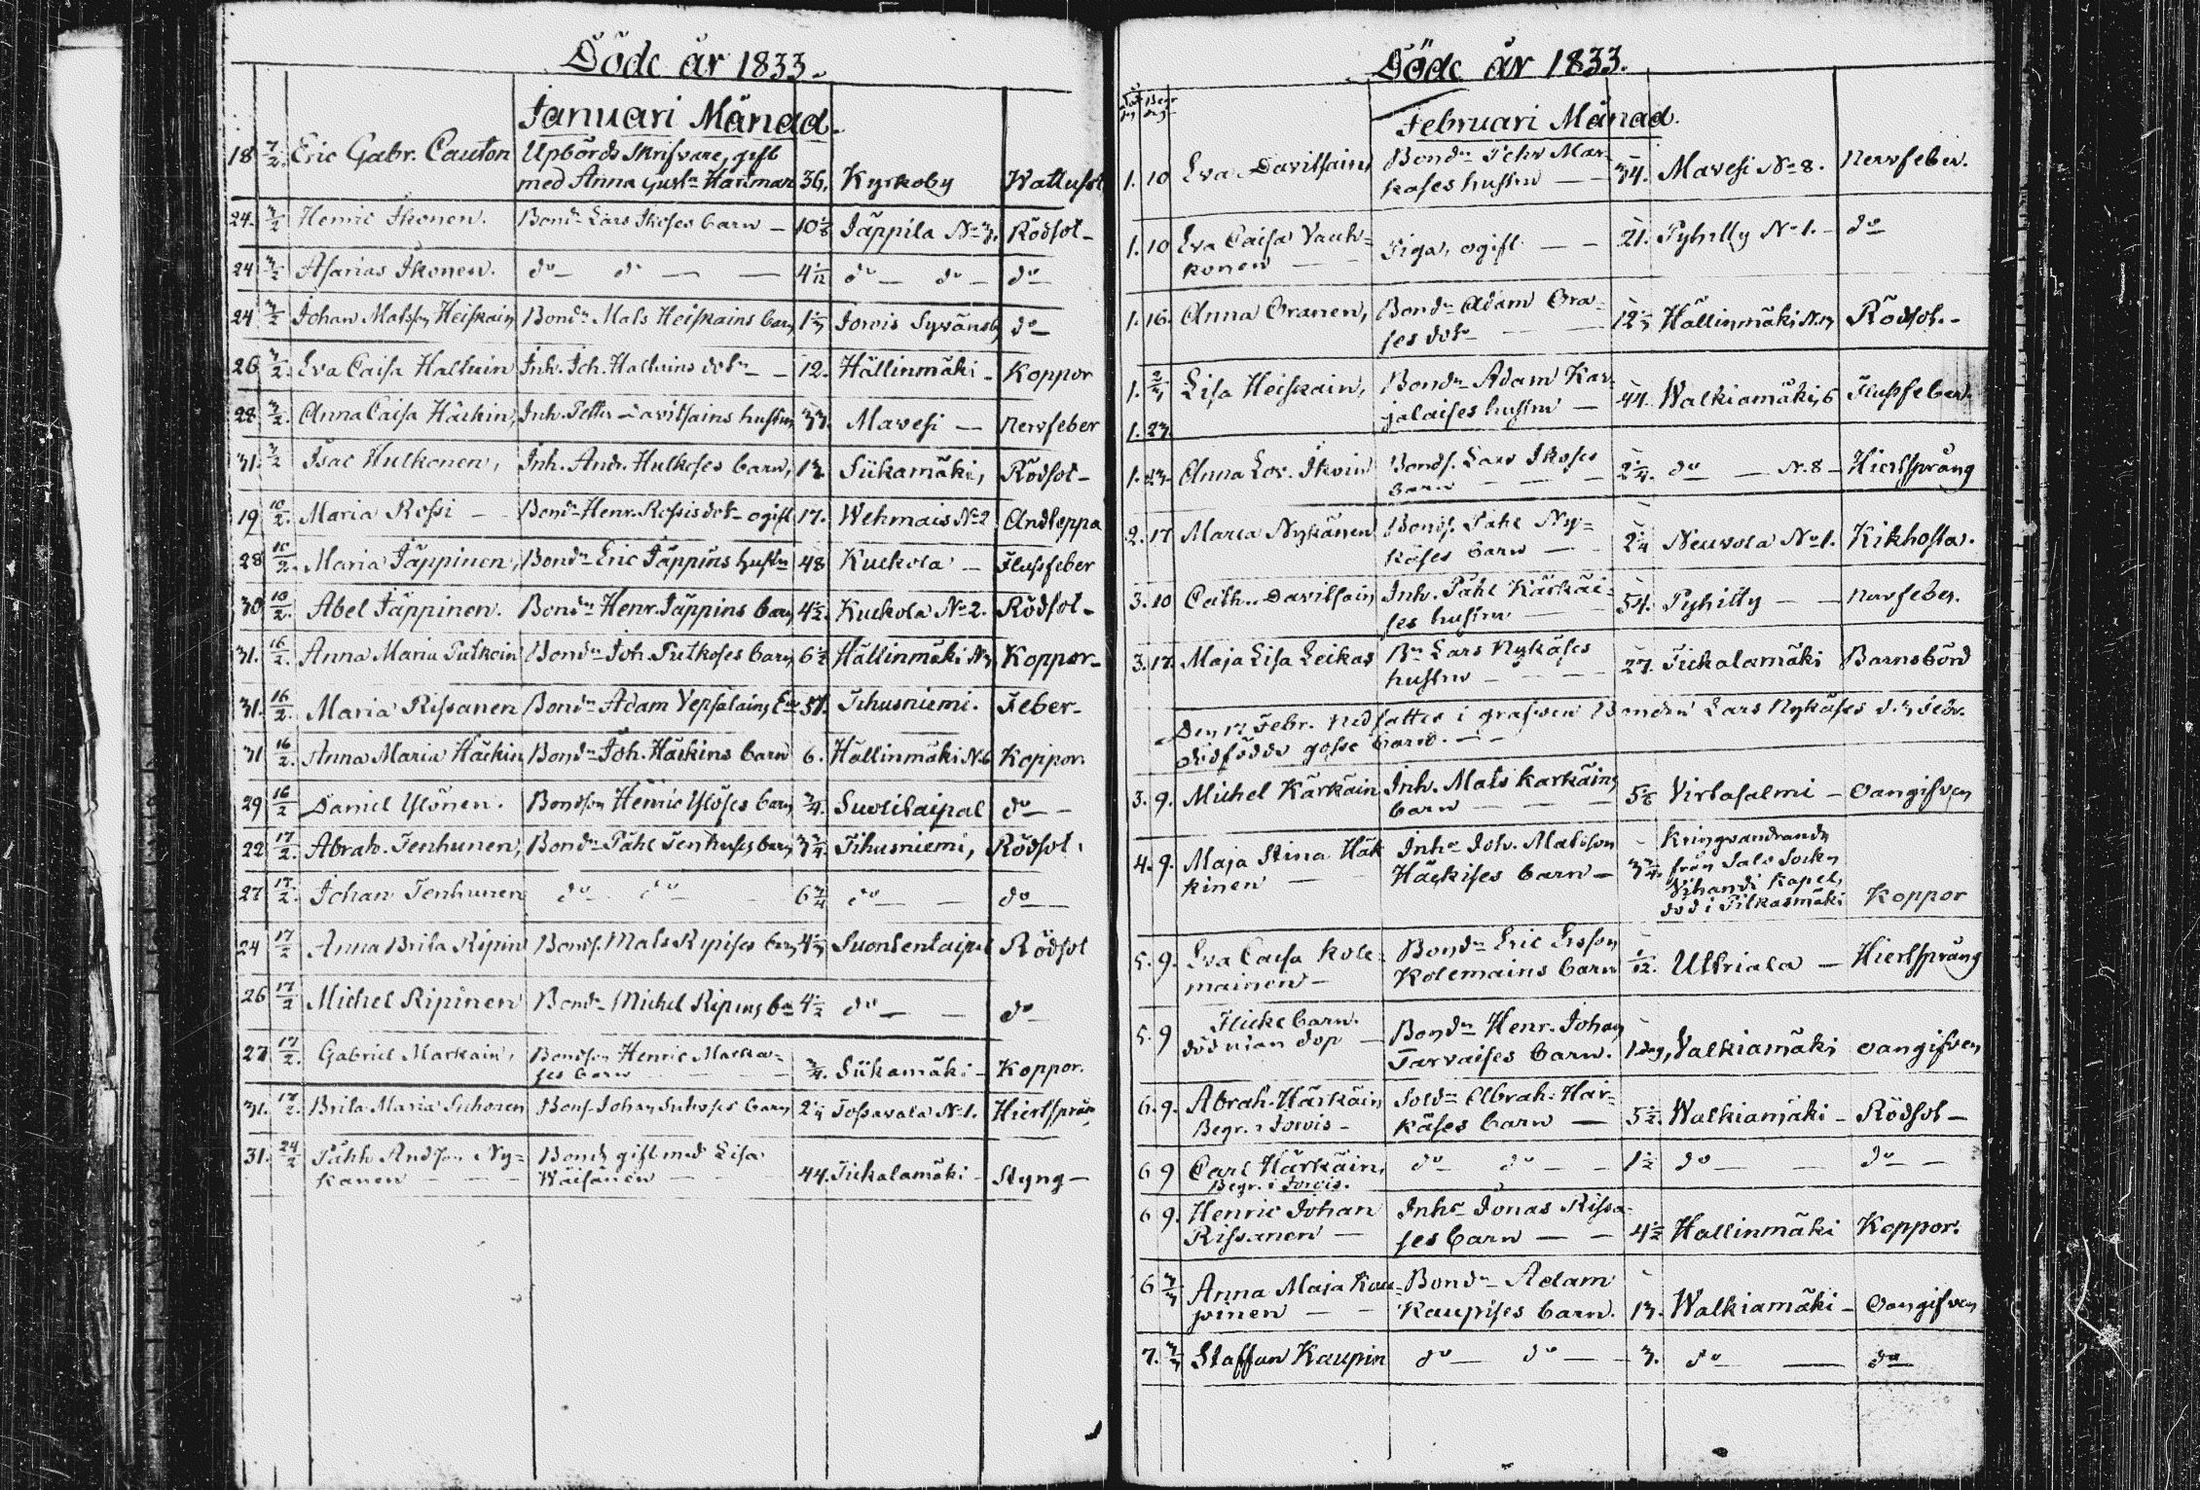 Döde år 1833.
Januari Månad.
18 7/2. Eric Gabr. Cauton Upbörds skrifvare, gift
med Anna Gust:a Hartman 36. Kyrkoby Wattusot
24. 3/2 Henric Ikonen. Bond:n Lars Ikoses barn — 10 1/8 Jäppila N:o 3. Rödsot —
24 3/2 Asarias Ikonen. d:o — d:o — — 4 1/12 d:o — d:o — d:o —
24 3/2 Johan Matsson Heiskain, Bond:n Mats Heiskains barn, 1 1/3 Jowis Syvänsy d:o —
26 3/2. Eva Caisa Halttuin Inh. Joh. Halttuins dot:r — 12. Hällinmäki — Koppor
28. 3/2. Anna Caisa Häkin, Inh. Petter Davitsains hustru, 33. Mavesi — Nervfeber
31. 3/2 Isac Hulkonen, Inh. Andr. Hulkoses barn, 13. Siikamäki, Rödsot —
19 10/2. Maria Rossi — Bond:n Henr. Rossis dot:r ogift 17. Wehmais N:o 2 Andteppa
28 10/2. Maria Jäppinen, Bond:n Eric Jäppins hustru 48 Kuckola — Flussfeber
30 10/2. Abel Jäppinen. Bond:n Henr. Jäppins barn 4 1/2. Kuckola N:o 2. Rödsot —
31. 16/2. Anna Maria Putkoin Bond:n Joh. Putkoses barn, 6 1/2 Hällinmäki N:3 Koppor —
31. 16/2. Maria Rissanen Bond:n Adam Yepsälains E:a 57. Tihusniemi. Feber —
31 16/2. Anna Maria Häckin Bond:n Joh. Häckins barn 6. Hällinmäki N:6 Koppor.
29 16/2 Daniel Ylönen. Bondson Henric Ylöses barn, 3/4. Suotlaipal d:o —
22 17/2. Abrah. Tenhunen, Bond:n Påhl Tenhuses barn, 3 3/4 Tihusniemi, Rödsot.
27 17/2. Johan Tenhunen d:o — d:o 6 3/4 d:o — — d:o —
24 17/2 Anna Brita Ripin Bonds. Mats Ripises barn, 4 1/3 Suontenlaipal Rödsot
26 17/2 Michel Ripinen Bond:n Michel Ripins b:n 4 1/2 d:o — — d:o
27 17/2. Gabriel Markain, Bondson Henric Marka=
ses barn 3/4. Siikamäki — Koppor.
31. 17/2. Brita Maria Suhonen Bons. Johan Suhoses barn, 2 1/4 Tossavala N:o 1. Hiertsprång
31. 24/2 Påhl Andson Ny= Bond, gift med Lisa
känen — — Wäisänen — 44. Tickalamäki — Styng —
Döde år 1833.
Död dag Begr dag
Februari Månad.
1. 10 Eva Davitsain, Bond:n Pehr Mar=
kases hustru — — 34. Mavesi N:o 8. Nervfeber.
1. 10 Eva Caisa Vauh=
konen — Piga, ogift — — 21. Pyhitty N:o 1. — d:o
1. 16. Anna Oranen, Bond:n Adam Ora=
ses dot:r — — 12 1/3 Hällinmäki N:13 Rödsot. —
1. 3/3 Lisa Heiskain, Bond:n Adam Kar=
jalaises hustru — 44. Walkiamäki, 6 Flussfeber.
1. 23.
1. 23. Anna Lov. Ikoin Bonds. Lars Ikoses
barn — — — 2 1/4. d:o — N:8 — Hiertsprång
2. 17 Maria Nykänen Bonds. Påhl Ny=
käses barn — — 2 1/4 Neuvola N:o 1. Kikhosta.
3. 10 Cath. Davitsain, Inh. Påhl Kärkäi=
ses hustru — 54. Pyhitty — — Nervfeber.
3. 17. Maja Lisa Leikas B:n Lars Nykäses
hustru — — — 27. Tickalamäki Barnsbörd
Den 17 Febr. nedsattes i grafven Bonden Lars Nykäses d. 3 Febr.
dödfödde gosse barn. — —
3. 9. Michel Kärkäin Inh. Mats Karkäins
barn — — — 5 1/6 Virtasalmi — Oangifven
4. 9. Maja Stina Häk Inh:s Joh. Matsson
kinen — — Häckises barn — 3 3/4. Kringvandrande
från Salo Socken
Vihandi Kapel,
död i Pitkasmäki Koppor
5. 9. Eva Caisa Kole= Bond:n Eric Ersson
mainen — Kolemains barn 1/12. Uttriala — Hiertsprång
5. 9 Flicke barn.
död utan dop — Bond:n Henr. Johan
Tarvaises barn. 1 dag, Valkiamäki Oangifven
6. 9. Abrah. Härkäin Sold:n Abrah. Här=
Begr. i Jowis — käses barn — 5 1/2. Walkiamäki — Rödsot —
6 9 Carl Härkäin, d:o — d:o — — 1 1/2 d:o — — d:o —
Begr. i Jowis.
6 9. Henric Johan Inh:s Jonas Rissa=
Rissanen — ses barn — — 4 1/2 Hallinmäki Koppor.
6 3/3 Anna Maja Kau= Bond:n Adam
pinen — — Kaupises barn. 13. Walkiamäki — Oangifven
7. 3/3 Staffan Kaupin d:o — d:o — — 3. d:o — d:o